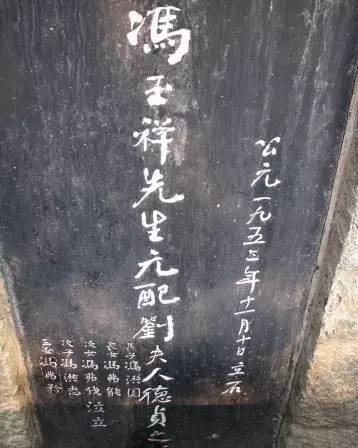 公元一九五三年十一月十日立石
馮玉祥先生元配劉夫人德貞之
長子馮洪国
長女馮弗能
次女馮弗伐
次子馮洪志
三女馮弗矜
泣立